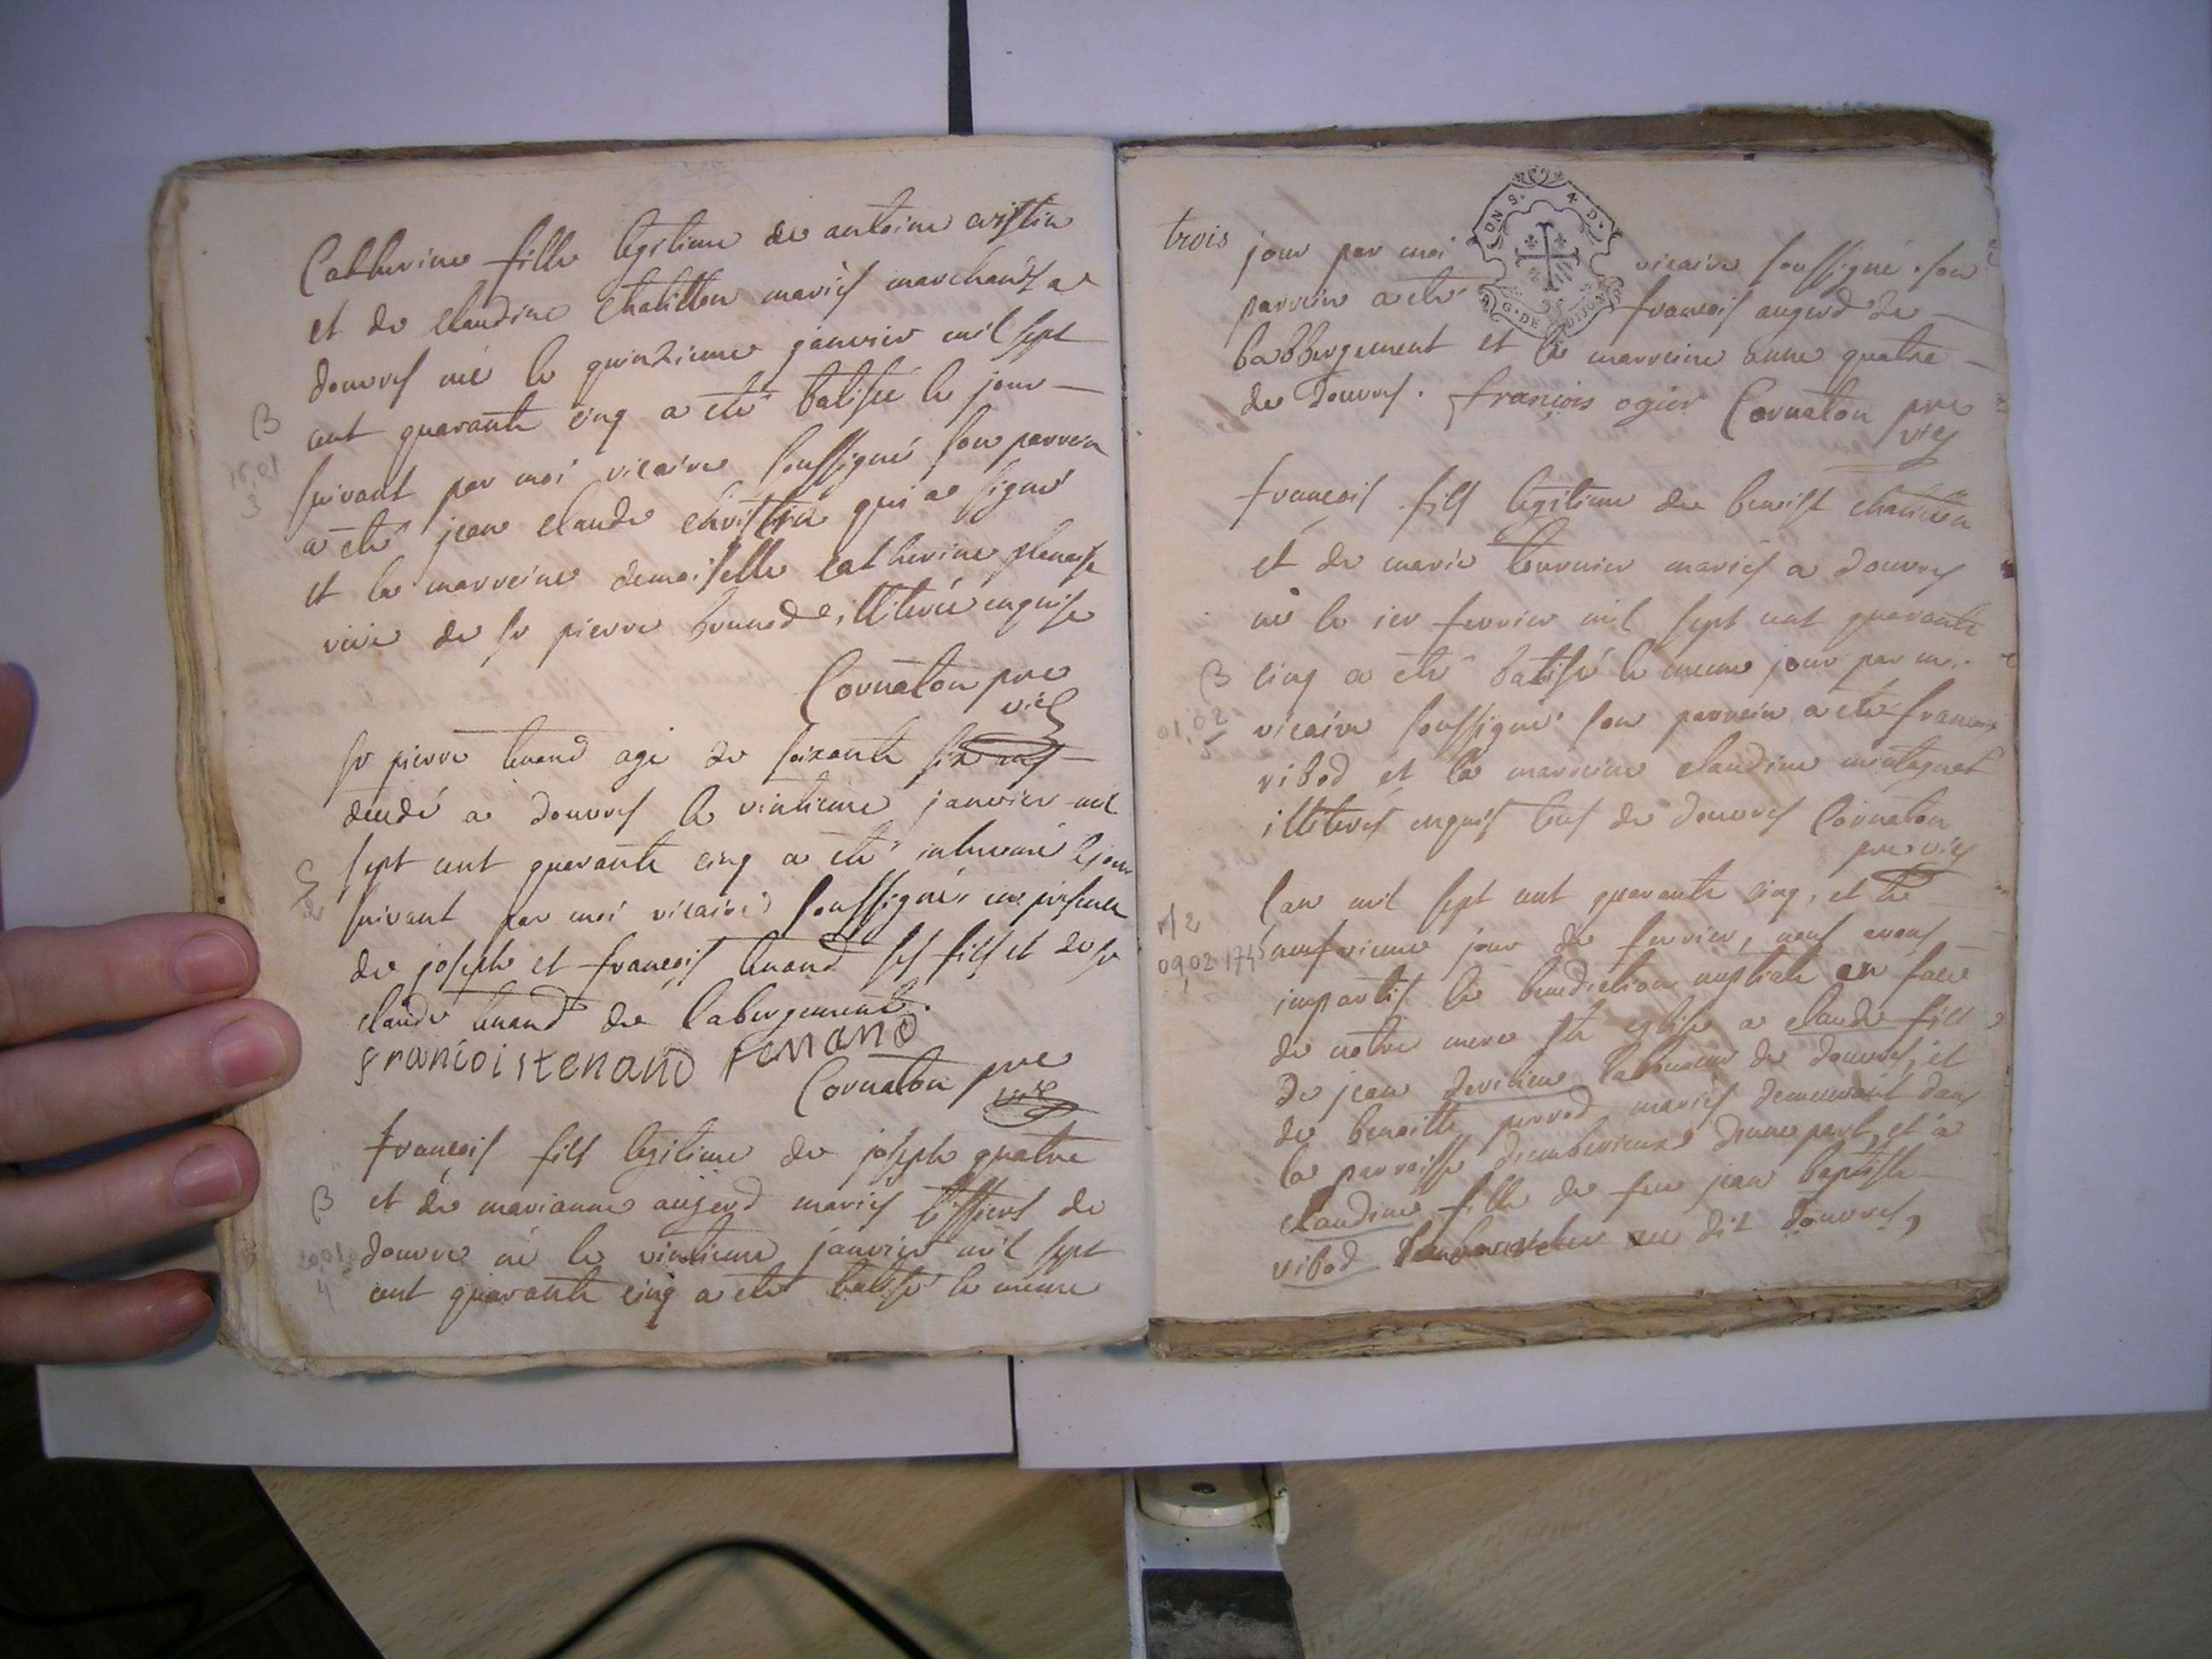 Catherine fille legitime de antoine cristin
et de claudine Chatillon mariés marchands a
douvres née le quinzieme janvier mil sept
cent quarante cinq a eté batisée le jour
suivant par moi vicaire soussigné son parrein
a eté jean claude christin qui a signé
et la marreine demoiselle catherine
de sr pierre illiterée enquise
Cornaton pre
vic
sr pierre tenand agé de soixante six ans
decedé a douvres le vintieme janvier mil
sept cent quarante cinq a eté inhumé le jour
suivant par moi vicaire soussigné, en presence
de joseph et francois tenand ses fils et de sr
claude tenand de labergement.
francois tenand tenand
Cornaton pre
vic
francois fils legitime de joseph quatre
et de marianne augerd mariés de
douvre né le vintieme janvier mil sept
cent quarante cinq a eté batisé le meme
trois
jour par moi vicaire soussigné. son
parrein a eté francois augerd de
labbergement et la marreine anne quatre
de douvres. françois ogier Cornaton pre
vic
G. DE DIJON
francois fils legitime de benoist chatillon
et de marie mariés a douvres
né le 1er fevrier mil sept cent quarante
cinq a eté batisé le meme jour par moi
vicaire soussigné son parrein a eté francois
vibod et la marreine claudine montagnet
illiterés enquis tous de douvres Cornaton
pre vic
lan mil sept cent quarante cinq, et le
neufvieme jour de fevrier, nous avons
imparti la benediction nuptiale en face
de notre mere ste eglise a claude fils
de jean devilieu laboureur de douvres, et
de benoitte perrod mariés demeurant dans
la parroisse damberieux dune part, et a
claudine fille de feu jean baptiste
vibod au dit douvres,
B
16,01
3
S
B
20,01
4
B
01,02
5
M
09,02 1745
1